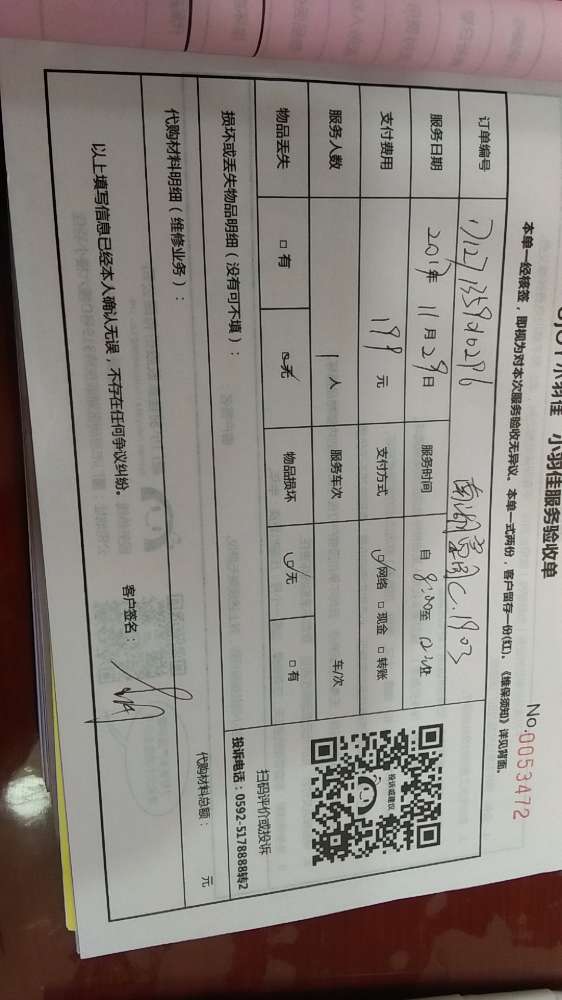 小羽佳 小羽佳服务验收单
No.0053472
本单一经核签，即视为对本次服务验收无异议。本单一式两份，客户留存一份(红)。《维保须知》详见背面。
订单编号
服务日期 2017年 11月 29日 服务时间 自 8:00至
支付费用 199 元 支付方式 ☑网络 □现金 □转账
服务人数 1人 服务车次 车/次
物品丢失 □有 ☑无 物品损坏 ☑无 □有
投诉或建议
扫码评价或投诉
投诉电话：0592-5178888转2
损坏或丢失物品明细（没有可不填）：
代购材料明细（维修业务）： 代购材料总额： 元
以上填写信息已经本人确认无误，不存在任何争议纠纷。 客户签名：